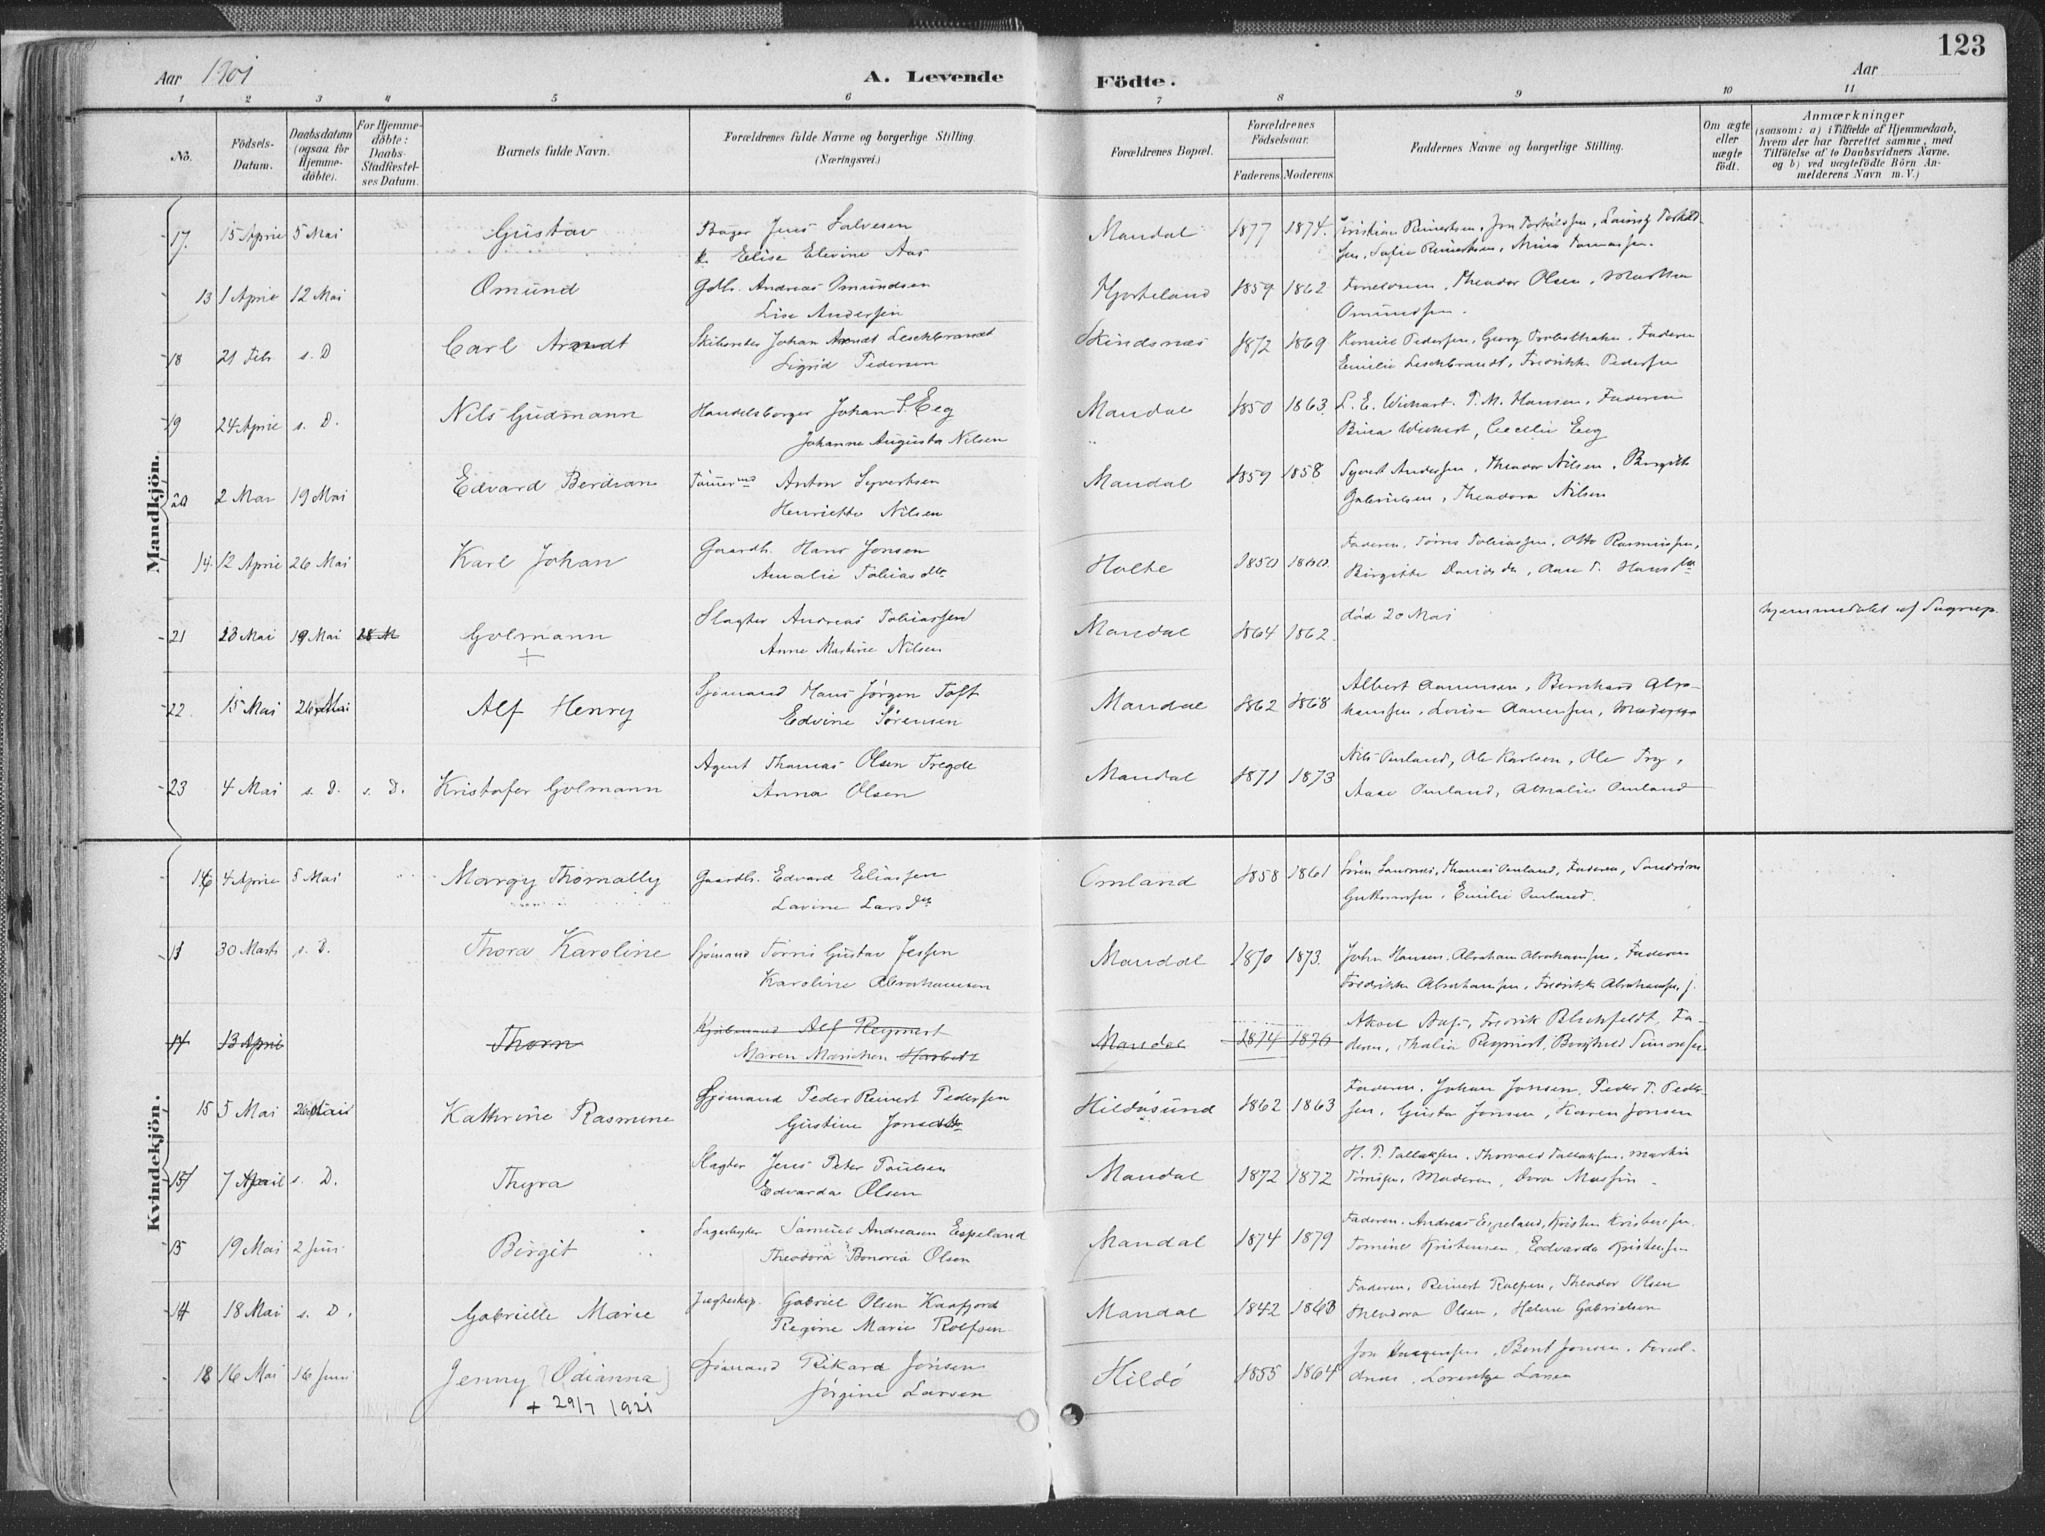 123
Aar 1901
A. Levende Födte.
Aar
1 2 3 4 5 6 7 8 9 10 11
No.
Födsels-Datum.
Daabsdatum (ogsaa for Hjemme-döbte).
For Hjemme-döbte: Daabs-Stadfæstel-ses Datum.
Barnets fulde Navn.
Forældrenes fulde Navne og borgerlige Stilling. (Næringsvei.)
Forældrenes Bopæl.
Forældrenes Födselsaar.
Faderens. Moderens.
Faddernes Navne og borgerlige Stilling.
Om ægte eller uægte födt.
Anmærkninger
(saasom: a) i Tilfælde af Hjemmedaab, hvem der har forrettet samme, med Tilföielse af to Daabsvidners Navne, og b) ved uægtefödte Börn An-melderens Navn m. V.)
Mandkjön.
17 15 April 5 Mai Gustav Bager Jens Salvesen Mandal 1877 1874.
Elise Elevine Aas
13 1 April 12 Mai Omund Gdbr. Andreas Omundsen Hjorteland 1859 1862 Theodor Olsen, Martha
Lise Andersen Omundsen.
18 21 Feb s. D Carl Arndt Johan Arndt Leschbrandt Skindsnæs 1872 1869 Pedersen, Georg Faderen
Sigrid Pedersen Emilie Leschbrandt, Fredrikke Pedersen
19 24 April s. D. Nils Gudmann Handelsborger Johan S. Eeg Mandal 1850 1863. L. E. Wichart. T. M. Hansen. Faderen
Johanne Augusta Nilsen Wichart, Cecilie Eeg
20 2 Mar 19 Mai Edvard Berdian Tømmermd Anton Syvertsen Mandal 1859 1858 Syvert Andersen, Theodor Nilsen, Birgitte
Henriette Nilsen Gabrielsen, Theodora Nilsen
14. 12 April 26 Mai Karl Johan Gaardb. Hans Jonsen Holte 1850 1860 Faderen, Tørris Tobiassen, Otto Rasmussen,
Amalie Tobiasdtr Birgitte Davidsdtr, Aase T. Hansdtr
21 18 Mai 19 Mai Golmann Slagter Andreas Tobiassen Mandal 1864 1862. død 20 Mai hjemmedøbt af
+ Anne Martine Nilsen
22. 15 Mai 26 Mai Alf Henry Sjømand Hans Jørgen Toft Mandal 1862 1868 Albert Aanensen, Bernhard Abra-
Edvine Sørensen hamsen, Louise Aanensen, Moderen
23 4 Mai s. D. s. D. Kristofer Golmann Agent Thomas Olsen Tregde Mandal 1871 1873 Nils Omland, Ole Karlsen, Ole Try,
Anna Olsen Aase Omland, Amalie Omland
Kvindekjön.
16 4 April 5 Mai Margy Thomally Gaardb. Edvard Eliassen Omland 1858 1861 Thomas Omland, Faderen,
Lavine Larsdtr Guttormsen, Emilie Omland.
13 30 Marts s. D. Thora Karoline Sjømand Tørris Gustav Jessen Mandal 1870 1873. John Hansen. Abraham Abrahamsen, Faderen
Karoline Abrahamsen Fredrikke Abrahamsen, Fredrikke Abrahamsen, j.
14 13 April Thora Kjøbmand Alf Reymert Mandal 1874 1876 Aksel Aas, Fredrik Blichfeldt, Fa-
Maren Marichen Harboe deren, Thalia Reymert, Borghild Simonsen
15 5 Mai 26 Mai Kathrine Rasmine Sjømand Peder Reinert Pedersen Hildøsund 1862 1863 Faderen, Johan Jonsen, Peder T. Peder-
Gustine Jonsdtr sen, Gusta Jonsen, Karen Jonsen
7 April s. D. Thyra Slagter Jens Peter Poulsen Mandal 1872 1872 H. P. Tallaksen, Thorvald Tallaksen, Martin
Edvarda Olsen Moderen, Dora
15 19 Mai 2 Juni Birgit Samuel Andreasen Espeland Mandal 1874 1879 Faderen, Andreas Espeland, Kristen Kristensen
Theodora Bonoria Olsen Tomine Kristensen, Edvarda Kristensen
14 18 Mai s. D. Gabrielle Marie Jægteskip. Gabriel Olsen Kaafjord Mandal 1842 1860 Faderen, Reinert Rolfsen, Theodor Olsen
Regine Marie Rolfsen Theodora Olsen, Helene Gabrielsen
18 16 Mai 16 Juni Jenny (Odianna) Sjømand Rikard Jonsen Hildö 1855 1864 Bent Jonsen, Foræl-
+ 29/7 1921 Jørgine Larsen drene, Larsen